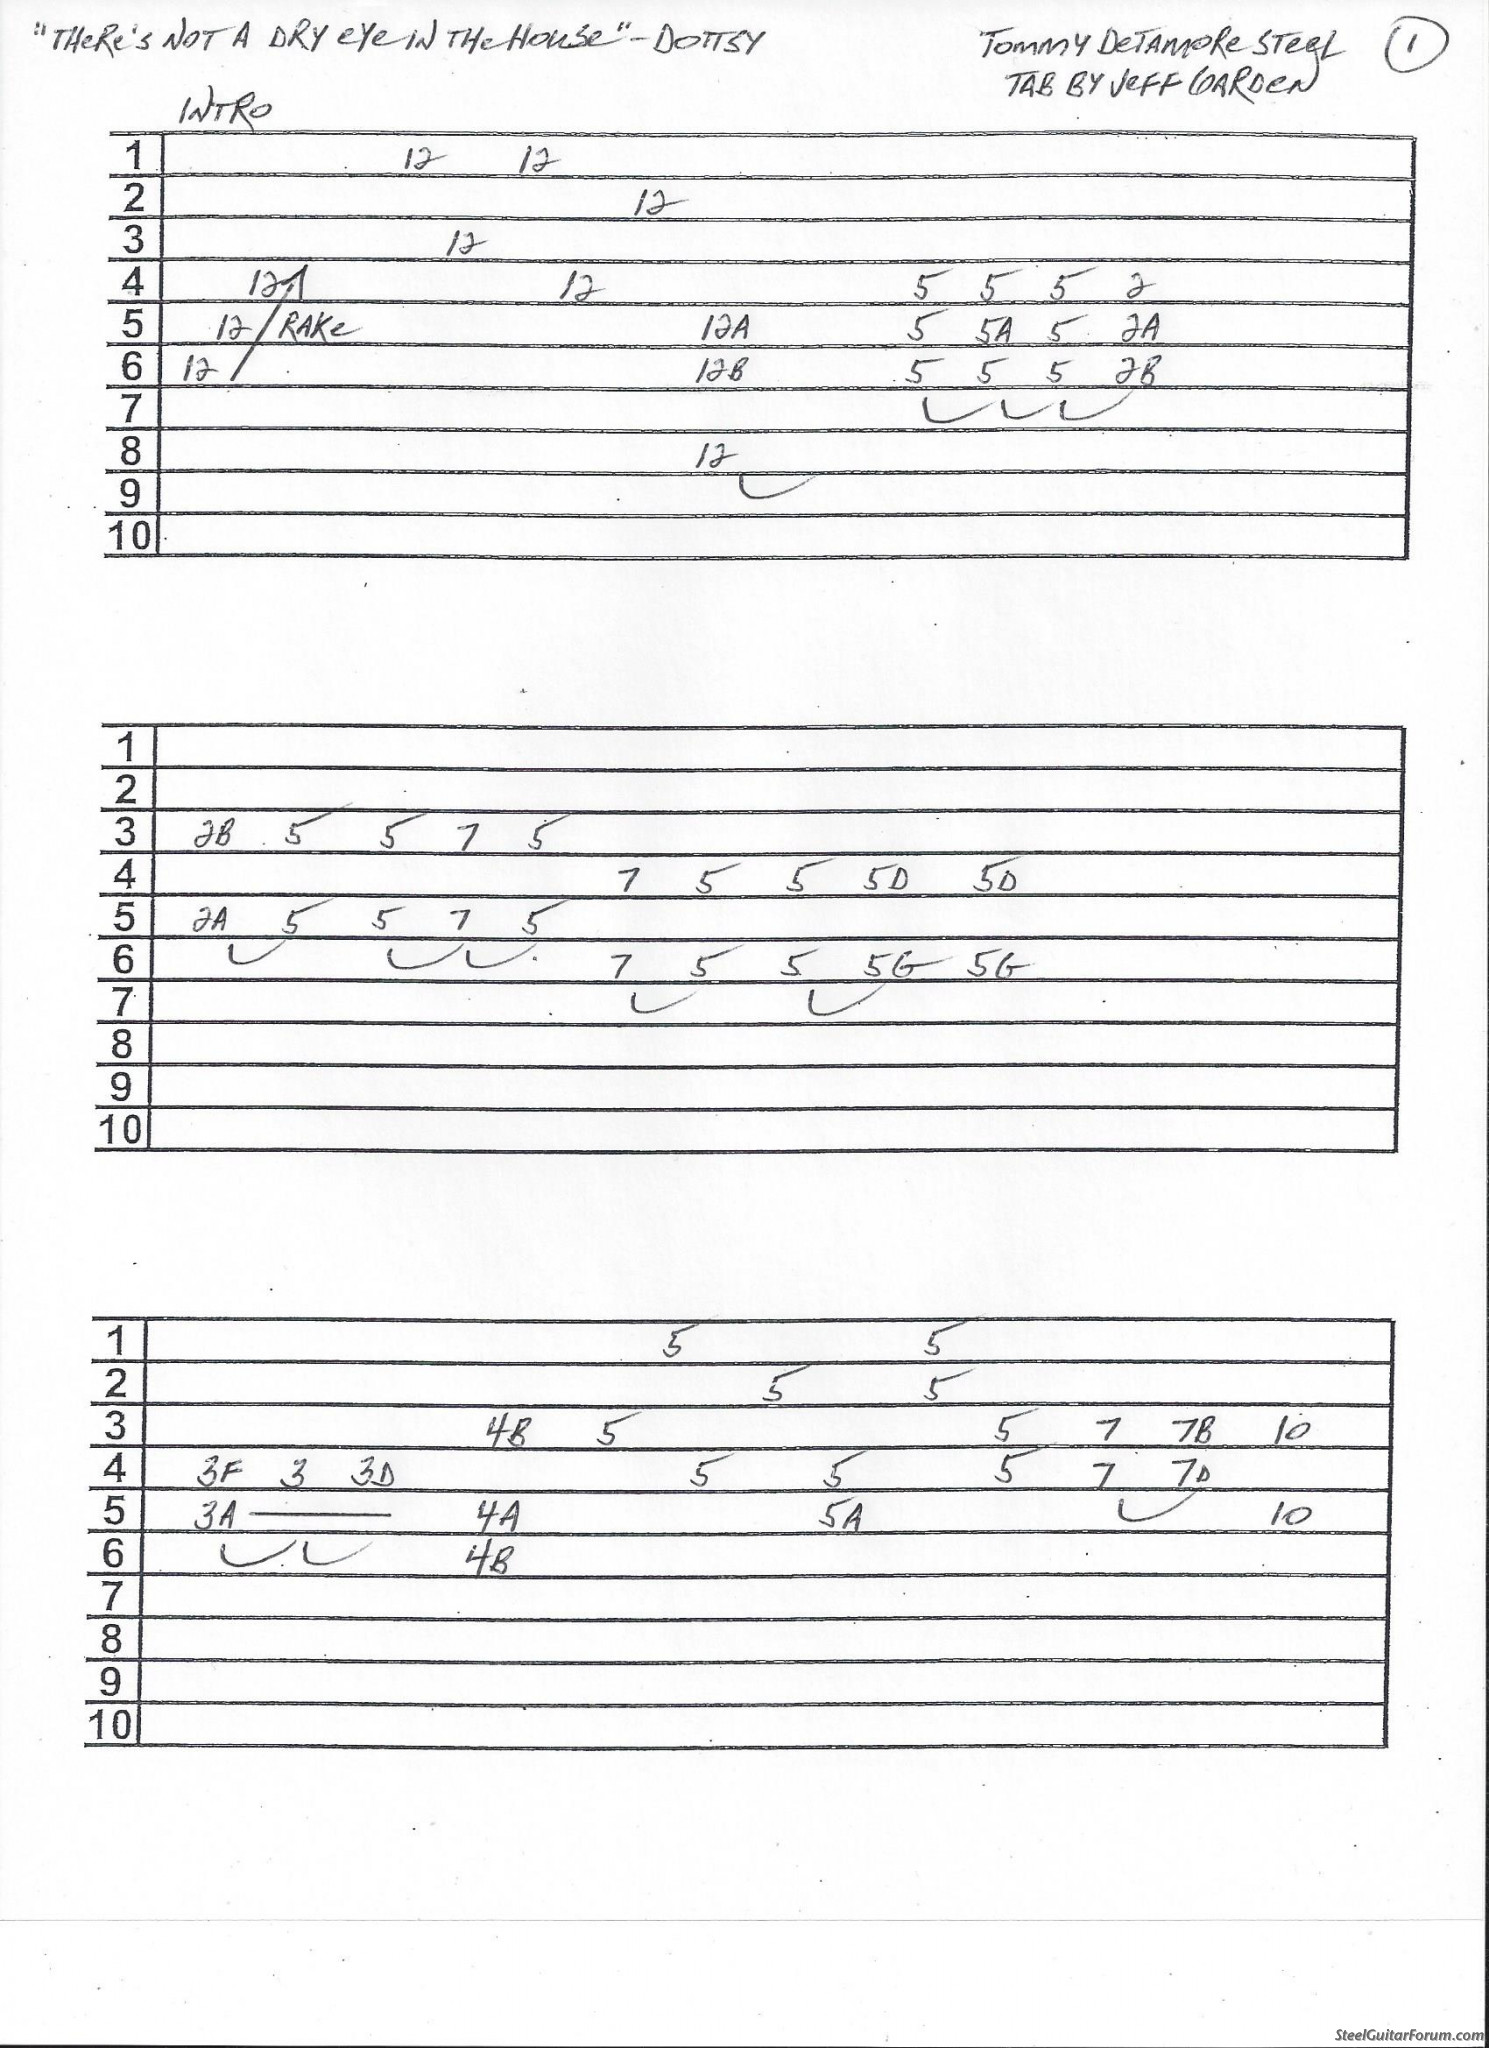 "THERE'S NOT A DRY EYE IN THE HOUSE" - DOTTSY
TOMMY DETAMORE STEEL 1
TAB BY JEFF GARDEN
INTRO
1 12 12
2 12
3 12
4 12 12 5 5 5 2
5 12 RAKE 12A 5 5A 5 2A
6 12 12B 5 5 5 2B
7
8 12
9
10
1
2
3 2B 5 5 7 5
4 7 5 5 5D 5D
5 2A 5 5 7 5
6 7 5 5 5G 5G
7
8
9
10
1 5 5
2 5 5
3 4B 5 5 7 7B 10
4 3F 3 3D 5 5 5 7 7D
5 3A 4A 5A 10
6 4B
7
8
9
10
SteelGuitarForum.com